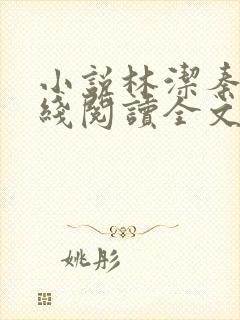 小説林潔秦
綫閱讀全文
姚彤